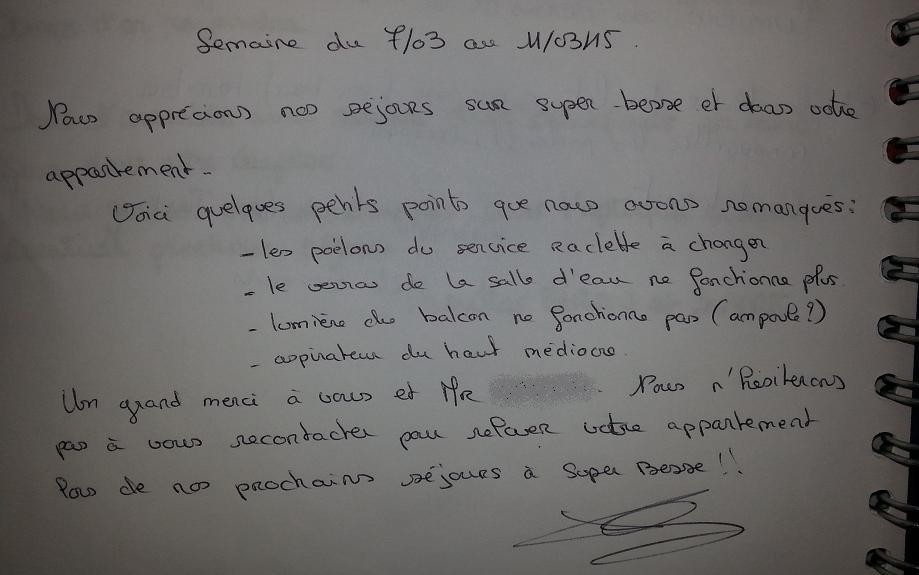 Semaine du 7/03 au 11/03/15.
Nous apprécions nos séjours sur super-besse et dans votre
appartement.
Voici quelques petits points que nous avons remarqués :
- les poêlons du service raclette à changer
- le verrou de la salle d'eau ne fonctionne plus.
- lumière du balcon ne fonctionne pas (ampoule ?)
- aspirateur du haut médiocre.
Un grand merci à vous et Mr . Nous n'hésiterons
pas à vous recontacter pour relouer votre appartement
lors de nos prochains séjours à Super Besse !!